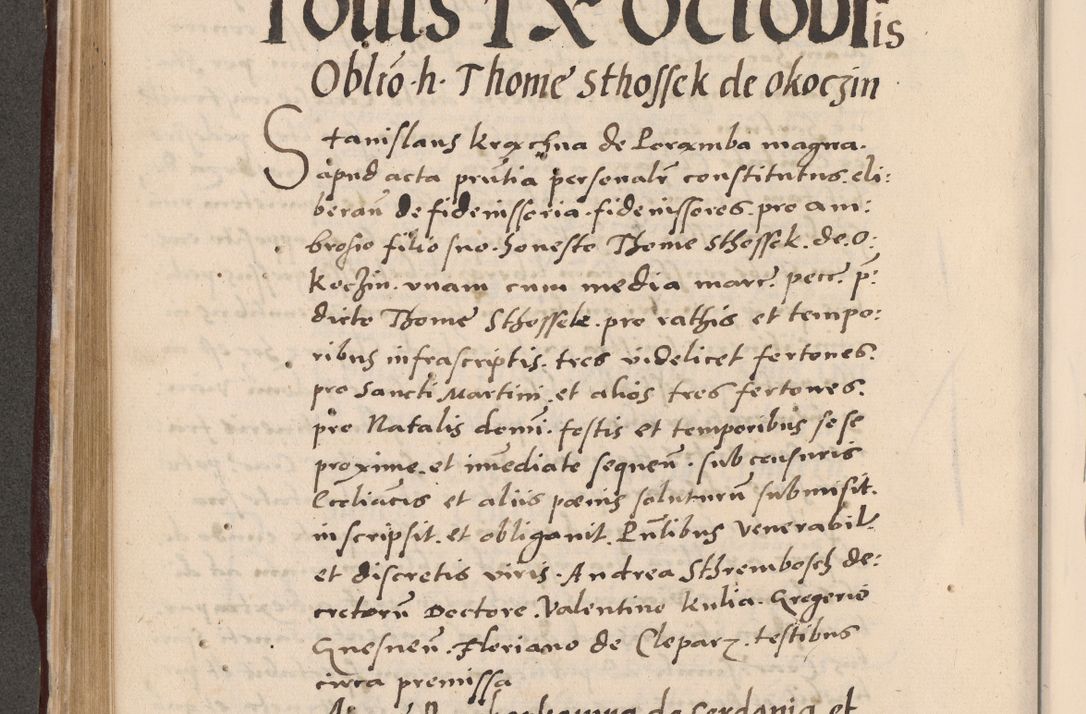 Iouis IX Octobris
Oblió h. Thome sthossek de okoczin
Stanislaus kroxchna de Poramba magna.
apud acta prñtia personalr̃ constitutus. eli:
beraũ de fideiussoria. fideiussores. pro am:
brosio filio suo. honesto Thome Sthossek. de. o:
koczin. vnam cum media marc̃. pecc̃. p̃:
dicto Thome Sthossek. pro rathis et tempo:
ribus infrascriptis. tres videlicet fertones.
pro Sancti Martini. et alios tres fertones.
pro Natalis domĩ. festis et temporibus sese
proxime. et im̃ediate sequeñ. sub censuris
Eccl̃iacis et aliis pœnis soluturũ submisit.
inscripsit. et obligauit. Pñtibus Venerabil̃
et discretis viris. Andrea Sthrembosch de:
cretorũ Doctore. Valentino kulia. Gregorio
Gnesneñ. Floriano de Cleparz. testibus
circa premissa
de Cerdonia et